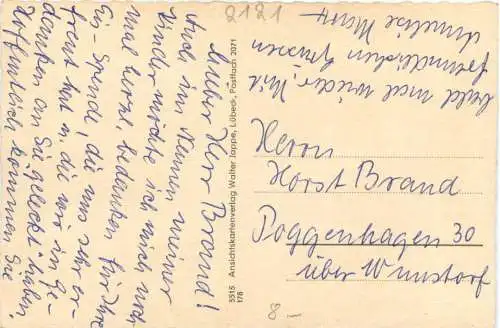 Lieber Herr Brand!
Auch im Namen meiner
Kinder möchte ich mich noch
mal herzl. bedanken für Ihre
Ei-Spende, die uns sehr er-
freut hat u. die wir in Ge-
danken an Sie gelöckt haben.
Hoffentlich kommen Sie
bald mal wieder. Mit
freundlichen Grüssen
Annelise
2121
5515 Ansichtskartenverlag Walter Jappe, Lübeck, Postfach 2071
178
Herrn
Horst Brand
Poggenhagen 30
über Wunstorf
8.–